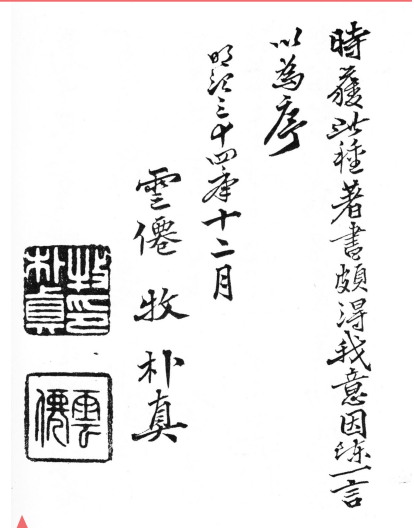 時獲此種著書頗得我意因綴一言
以為序
明治三十四年十二月
雲僊 牧朴真
牧印朴真
雲僊